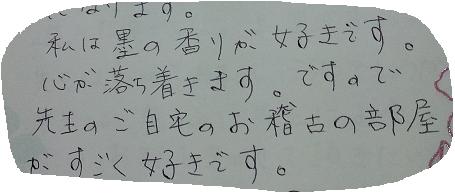 になります。
私は墨の香りが好きです。
心が落ち着きます。ですので
先生のご自宅のお稽古の部屋
がすごく好きです。